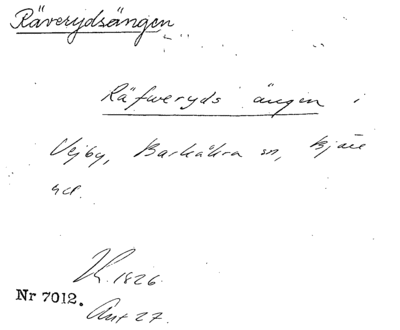 Räverydsängen
Räfweryds ängen i
Vejby, Barkåkra sn, Bjäre
hd.
1826.
Nr 7012.
Ant 27.